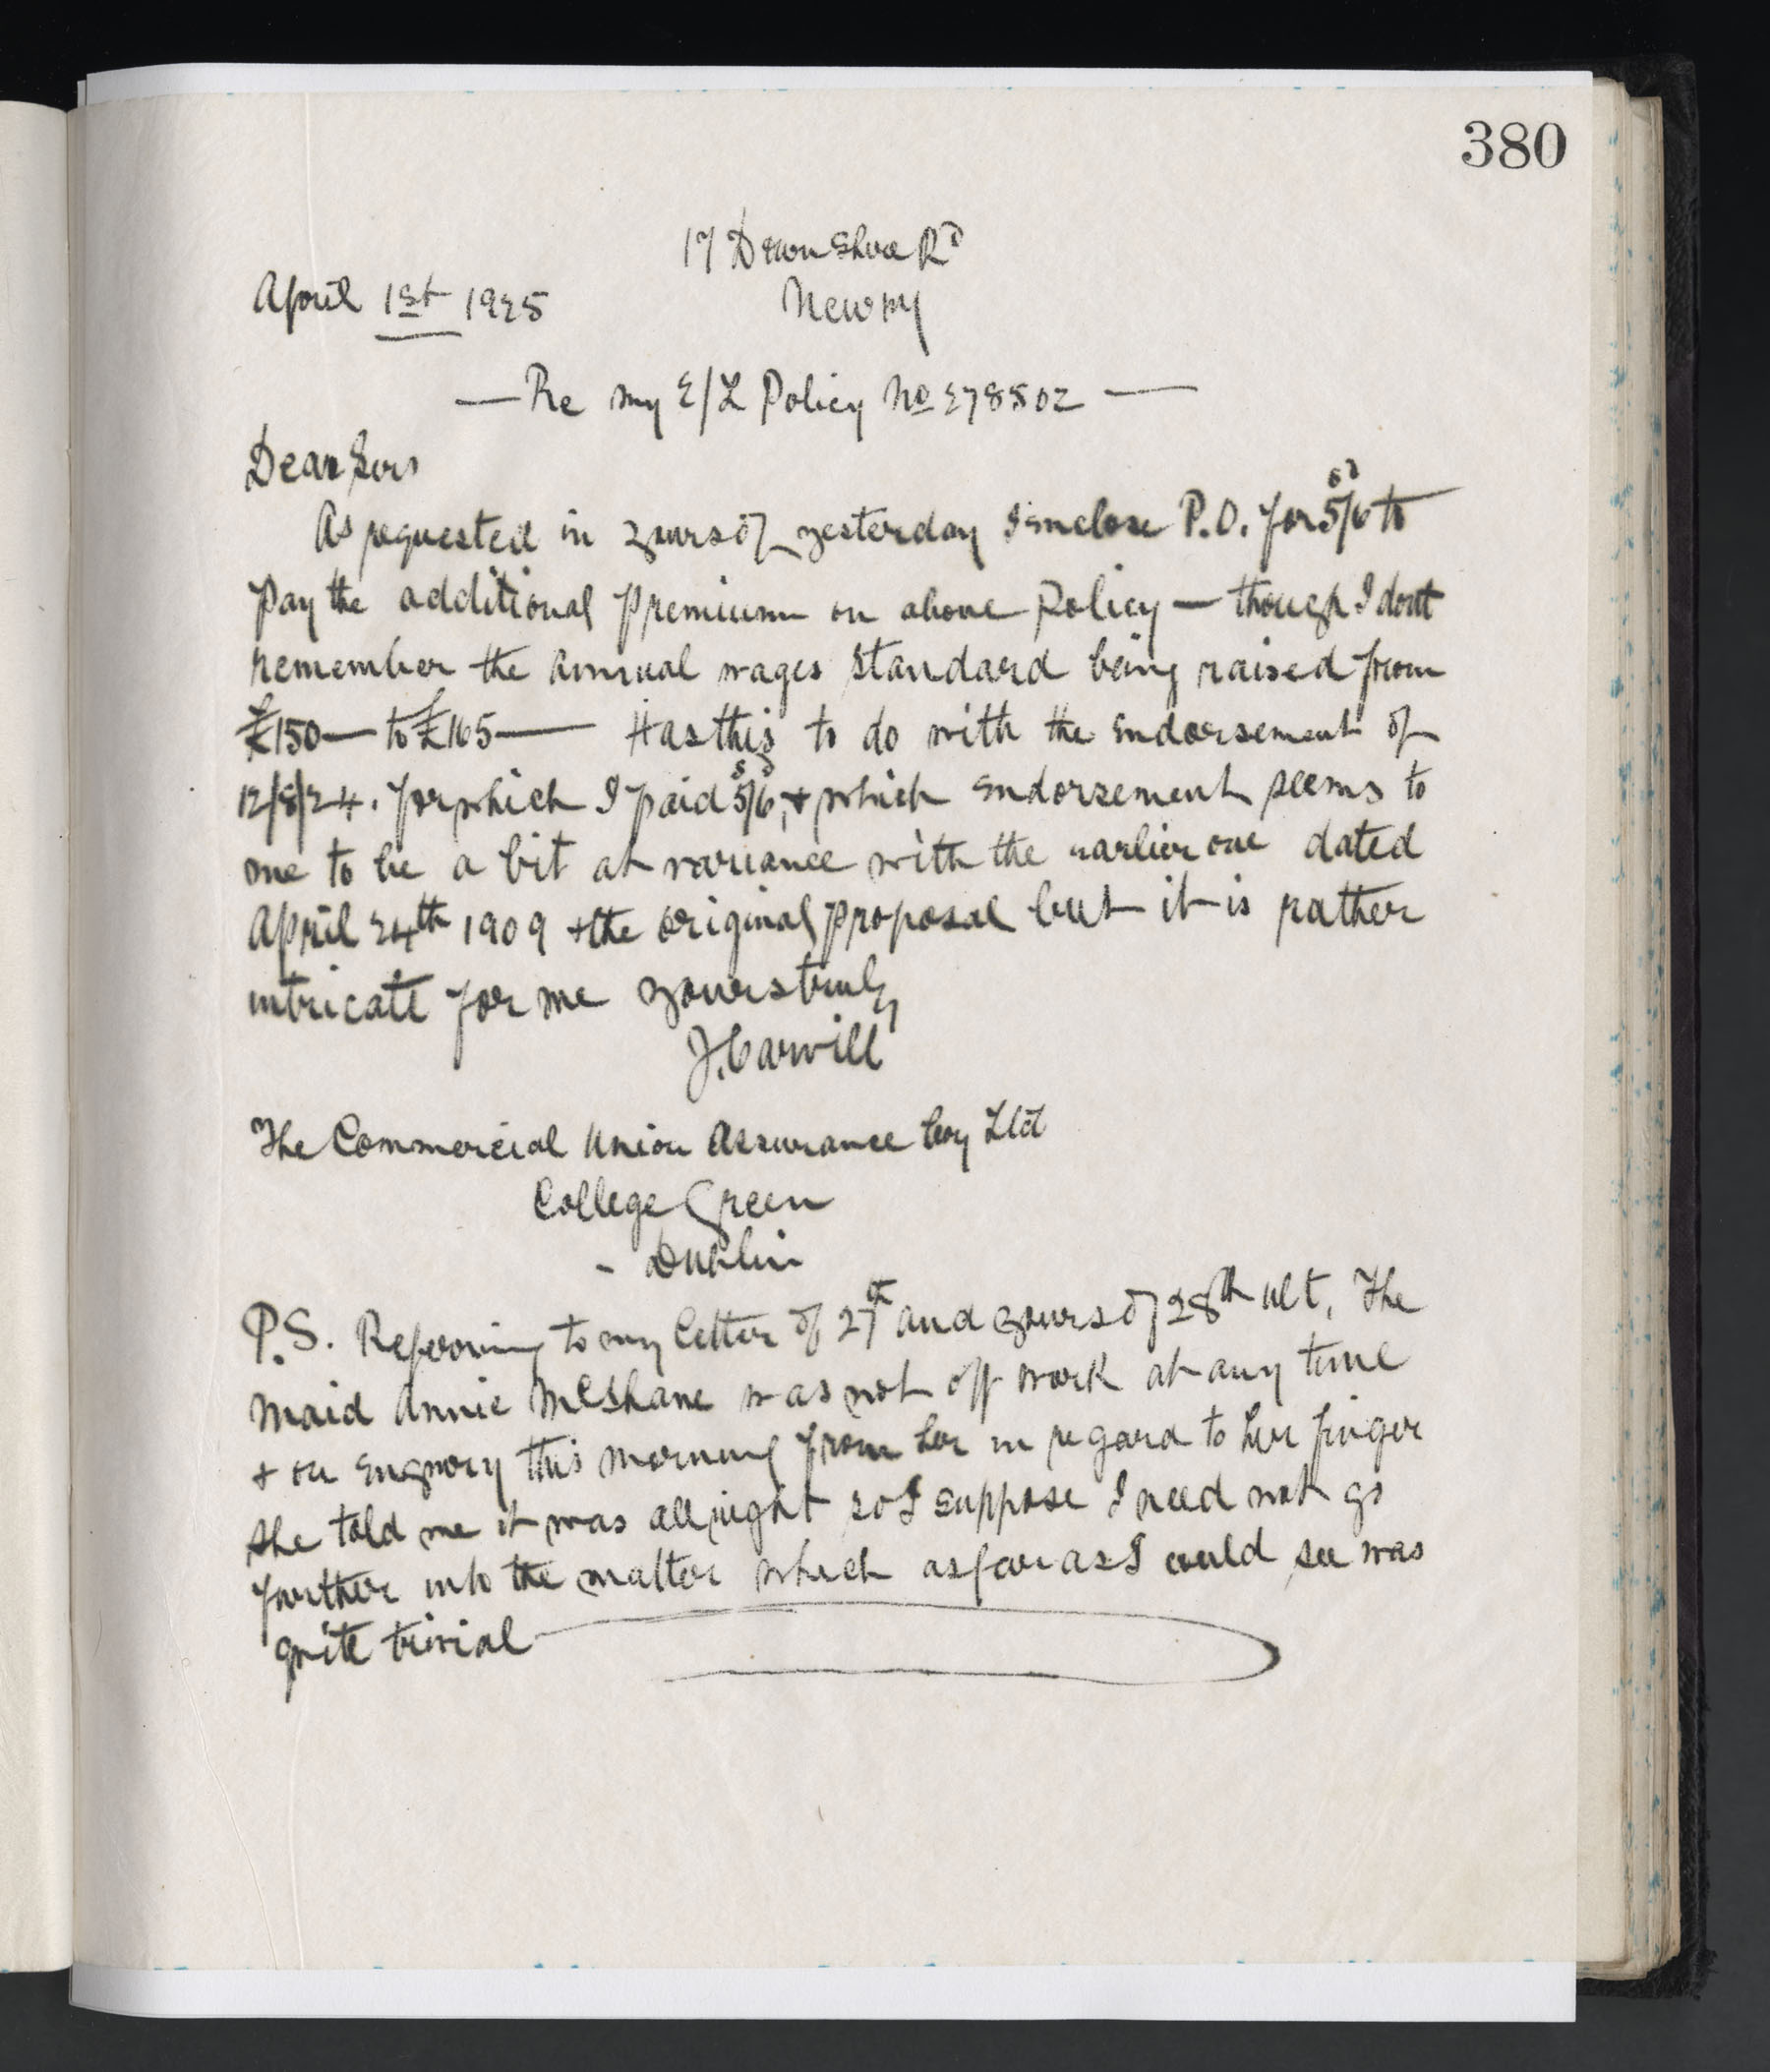 380
17 Downshire Rd
April 1st 1925
Newry
— Re my E/L Policy No 278502 —
Dear Sirs
As requested in yours of yesterday I enclose P.O. for 5s/6d to
pay the additional premium on above Policy — though I dont
remember the annual wages standard being raised from
£150 — to £165 — Has this to do with the endorsement of
12/8/24. for which I paid 5s/6d, + which endorsement seems to
me to be a bit at variance with the earlier one dated
April 24th 1909 + the original proposal but it is rather
intricate for me yours truly
J. Carvill
The Commercial Union Assurance Coy Ltd
College Green
- Dublin
P.S. Referring to my letter of 27th and yours of 28th ult, The
maid Annie McShane was not off work at any time
+ on enquiry this morning from her in regard to her finger
she told me it was all right so I suppose I need not go
further into the matter which as far as I could see was
quite trivial